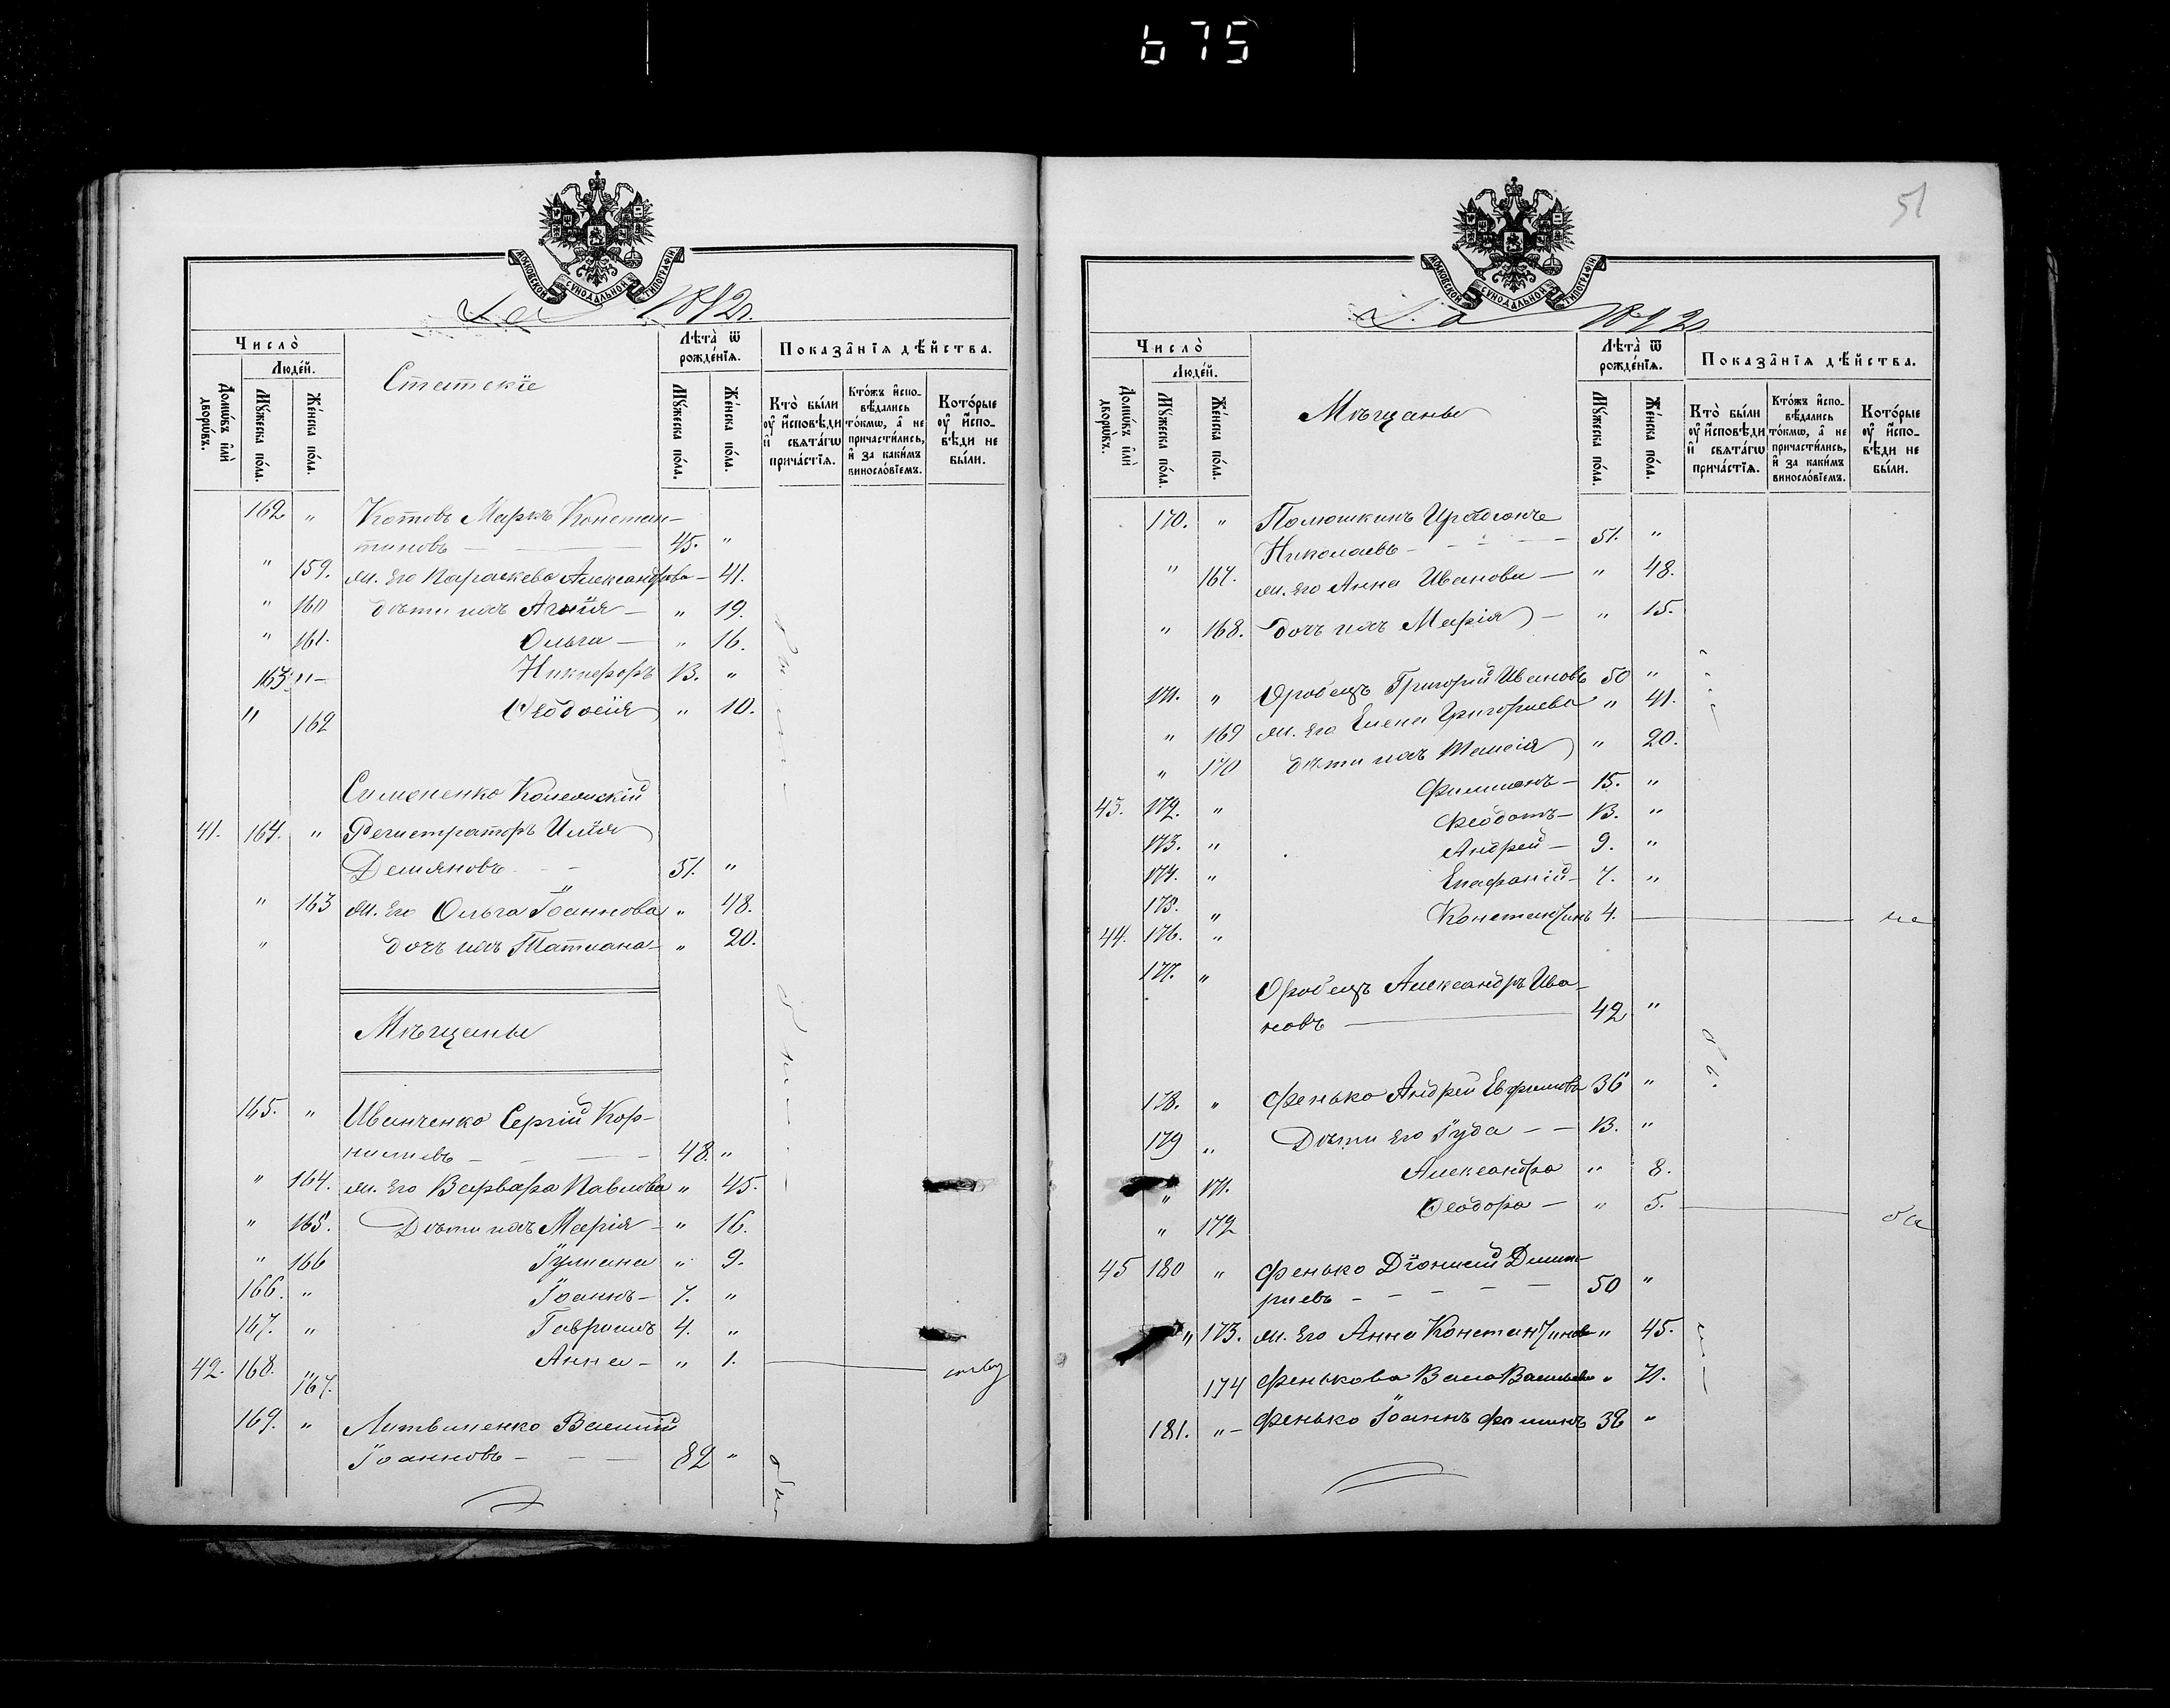 675
МОСКОВСКОЙ СѴНОДАЛЬНОЙ ТИПОГРАФІИ
За 1892 г.
Число̀
Людей.
Домѡвъ и҆лѝ дворѡвъ.
Мꙋжеска по́ла.
Же́нска по́ла.
Статскіе
Лѣта̀ ѿ рожде́нїѧ.
Мꙋжеска по́ла.
Же́нска по́ла.
Показа̂нїѧ дѣ́йства.
Кто̀ бы́ли оу҆ и҆сповѣди и҆ свѧта́гѡ прича́стїѧ.
Кто́жъ и҆спо-вѣдались то́кмѡ, а҆ не причасти́лись, и҆ за каки́мъ винослові́емъ.
Кото́рые оу҆ и҆спо-вѣди не бы́ли.
162 " Котовъ Маркъ Констан-
тиновъ — 45. "
" 159. ж. его Параскева Александрова — 41.
" 160 дѣти ихъ Агнія — " 19.
" 161. Ольга — " 16.
163 " — Никифоръ 13. "
" 162 Ѳеодосія " 10.
Симоненко Колежскій
41. 164. " Регистраторъ Илія
Демяновъ — 51. "
" 163 ж. его Ольга Іоаннова " 48.
" дочь ихъ Татиана — " 20.
Мѣщане
165. " Иванченко Сергій Кор-
нилиевъ — 48. "
" 164. ж. его Варвара Павлова " 45.
" 165. Дѣти ихъ Марія — " 16.
" 166 Іулиана " 9.
166. " Іоаннъ — 7. "
167. " Гавріилъ 4. "
42. 168. 167. Анна — " 1.
169. " Литвиненко Василій
Іоанновъ — 82 "
51
МОСКОВСКОЙ СѴНОДАЛЬНОЙ ТИПОГРАФІИ
За 1892
Число̀
Людей.
Домѡвъ и҆лѝ дворѡвъ.
Мꙋжеска по́ла.
Же́нска по́ла.
Мѣщане
Лѣта̀ ѿ рожде́нїѧ.
Мꙋжеска по́ла.
Же́нска по́ла.
Показа̂нїѧ дѣ́йства.
Кто̀ бы́ли оу҆ и҆сповѣди и҆ свѧта́гѡ прича́стїѧ.
Кто́жъ и҆спо-вѣдались то́кмѡ, а҆ не причасти́лись, и҆ за каки́мъ винослові́емъ.
Кото́рые оу҆ и҆спо-вѣди не бы́ли.
170. " Полюшкинъ Иродіонъ
Николаевъ — 51. "
" 167. ж. его Анна Иванова — " 48.
" 168. дочь ихъ Марія — " 15.
171. " Яробецъ Григорій Ивановъ 50 "
" 169 ж. его Елена Григориева " 41.
" 170 дѣти ихъ Таисія " 20.
43. 172. " Филимонъ — 15. "
173. " Феодотъ — 13. "
174. " Андрей — 9. "
175. " Епифаній — 7. "
44. 176. " Константинъ 4. не
177. " Яробецъ Александръ Ива-
новъ — 42 "
178. " Фенько Андрей Евфимовъ 36 "
179 " Дѣти его Іуда — 13. "
" 171. Александра " 8.
" 172 Ѳеодора — " 5.
45 180 " Фенько Діонисій Димит-
риевъ — 50 "
" 173. ж. его Анна Константинова " 45.
174 Фенькова Васса Васильева " 71.
181. " — Фенько Іоаннъ Фоминъ 38 "